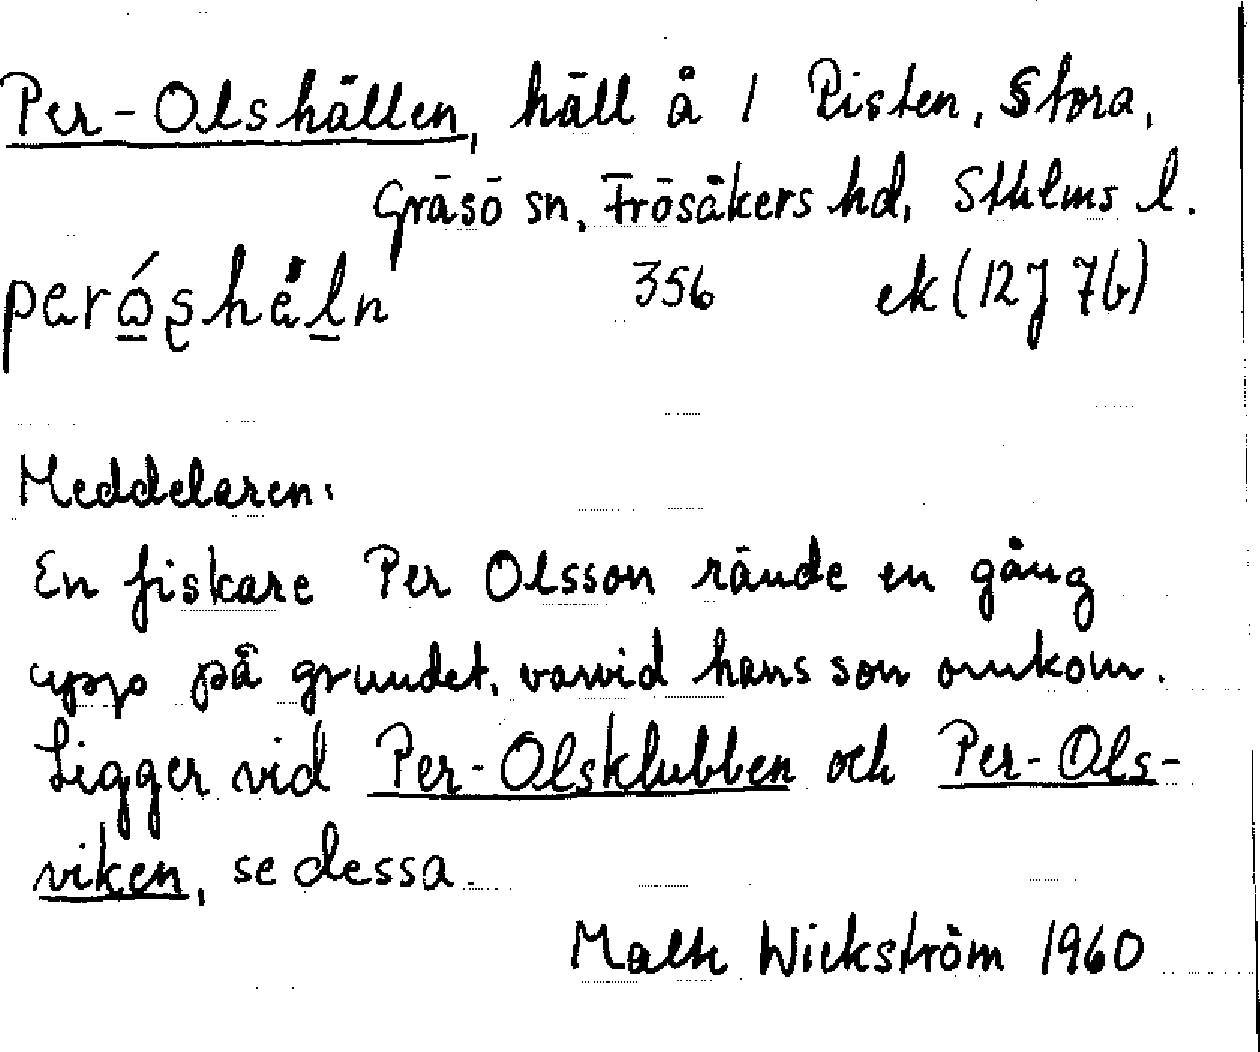 Per-Olshällen, häll å 1 Risten, Stora,
Gräsö sn, Frösåkers hd, Sthlms l.
356 ek (12J 7b)
Meddelaren:
En fiskare Per Olsson rände en gång
upp på grundet, varvid hans son omkom.
Ligger vid Per-Olsklubben och Per-Ols-
viken, se dessa.
Wickström 1960